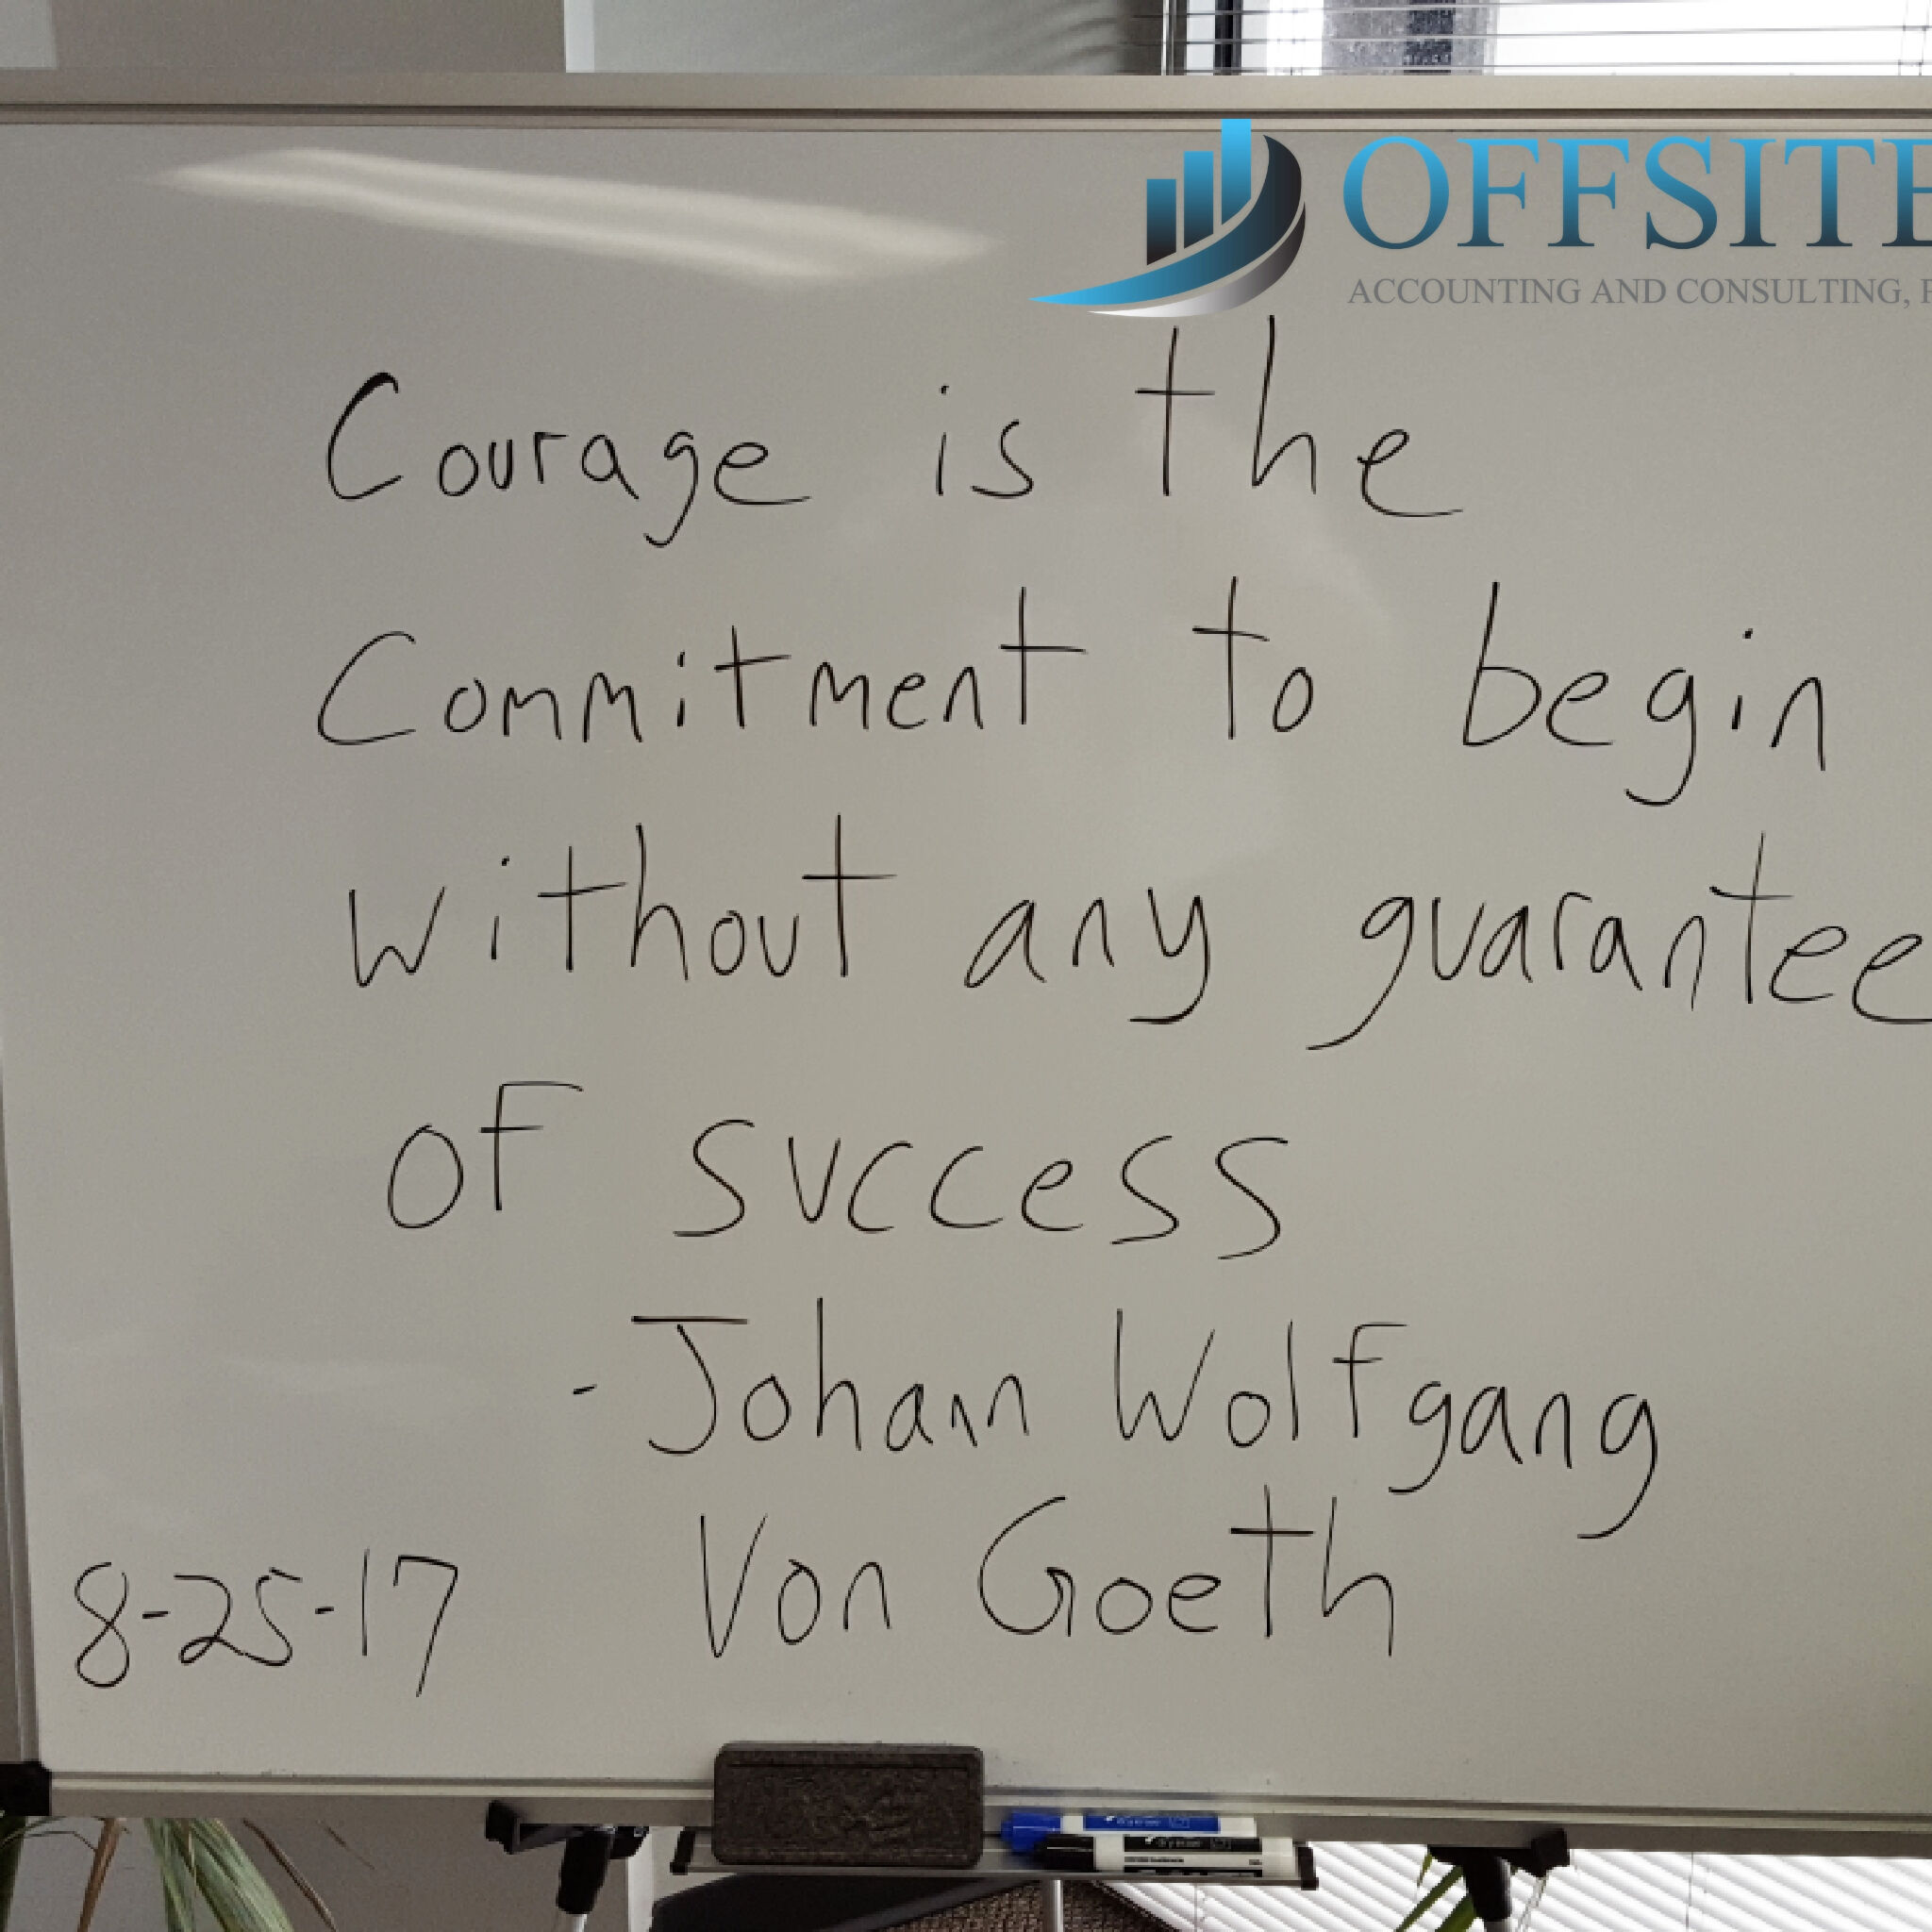 OFFSITE
ACCOUNTING AND CONSULTING,
Courage is the
Commitment to begin
without any guarantee
of success
- Johann Wolfgang
Von Goeth
8-25-17